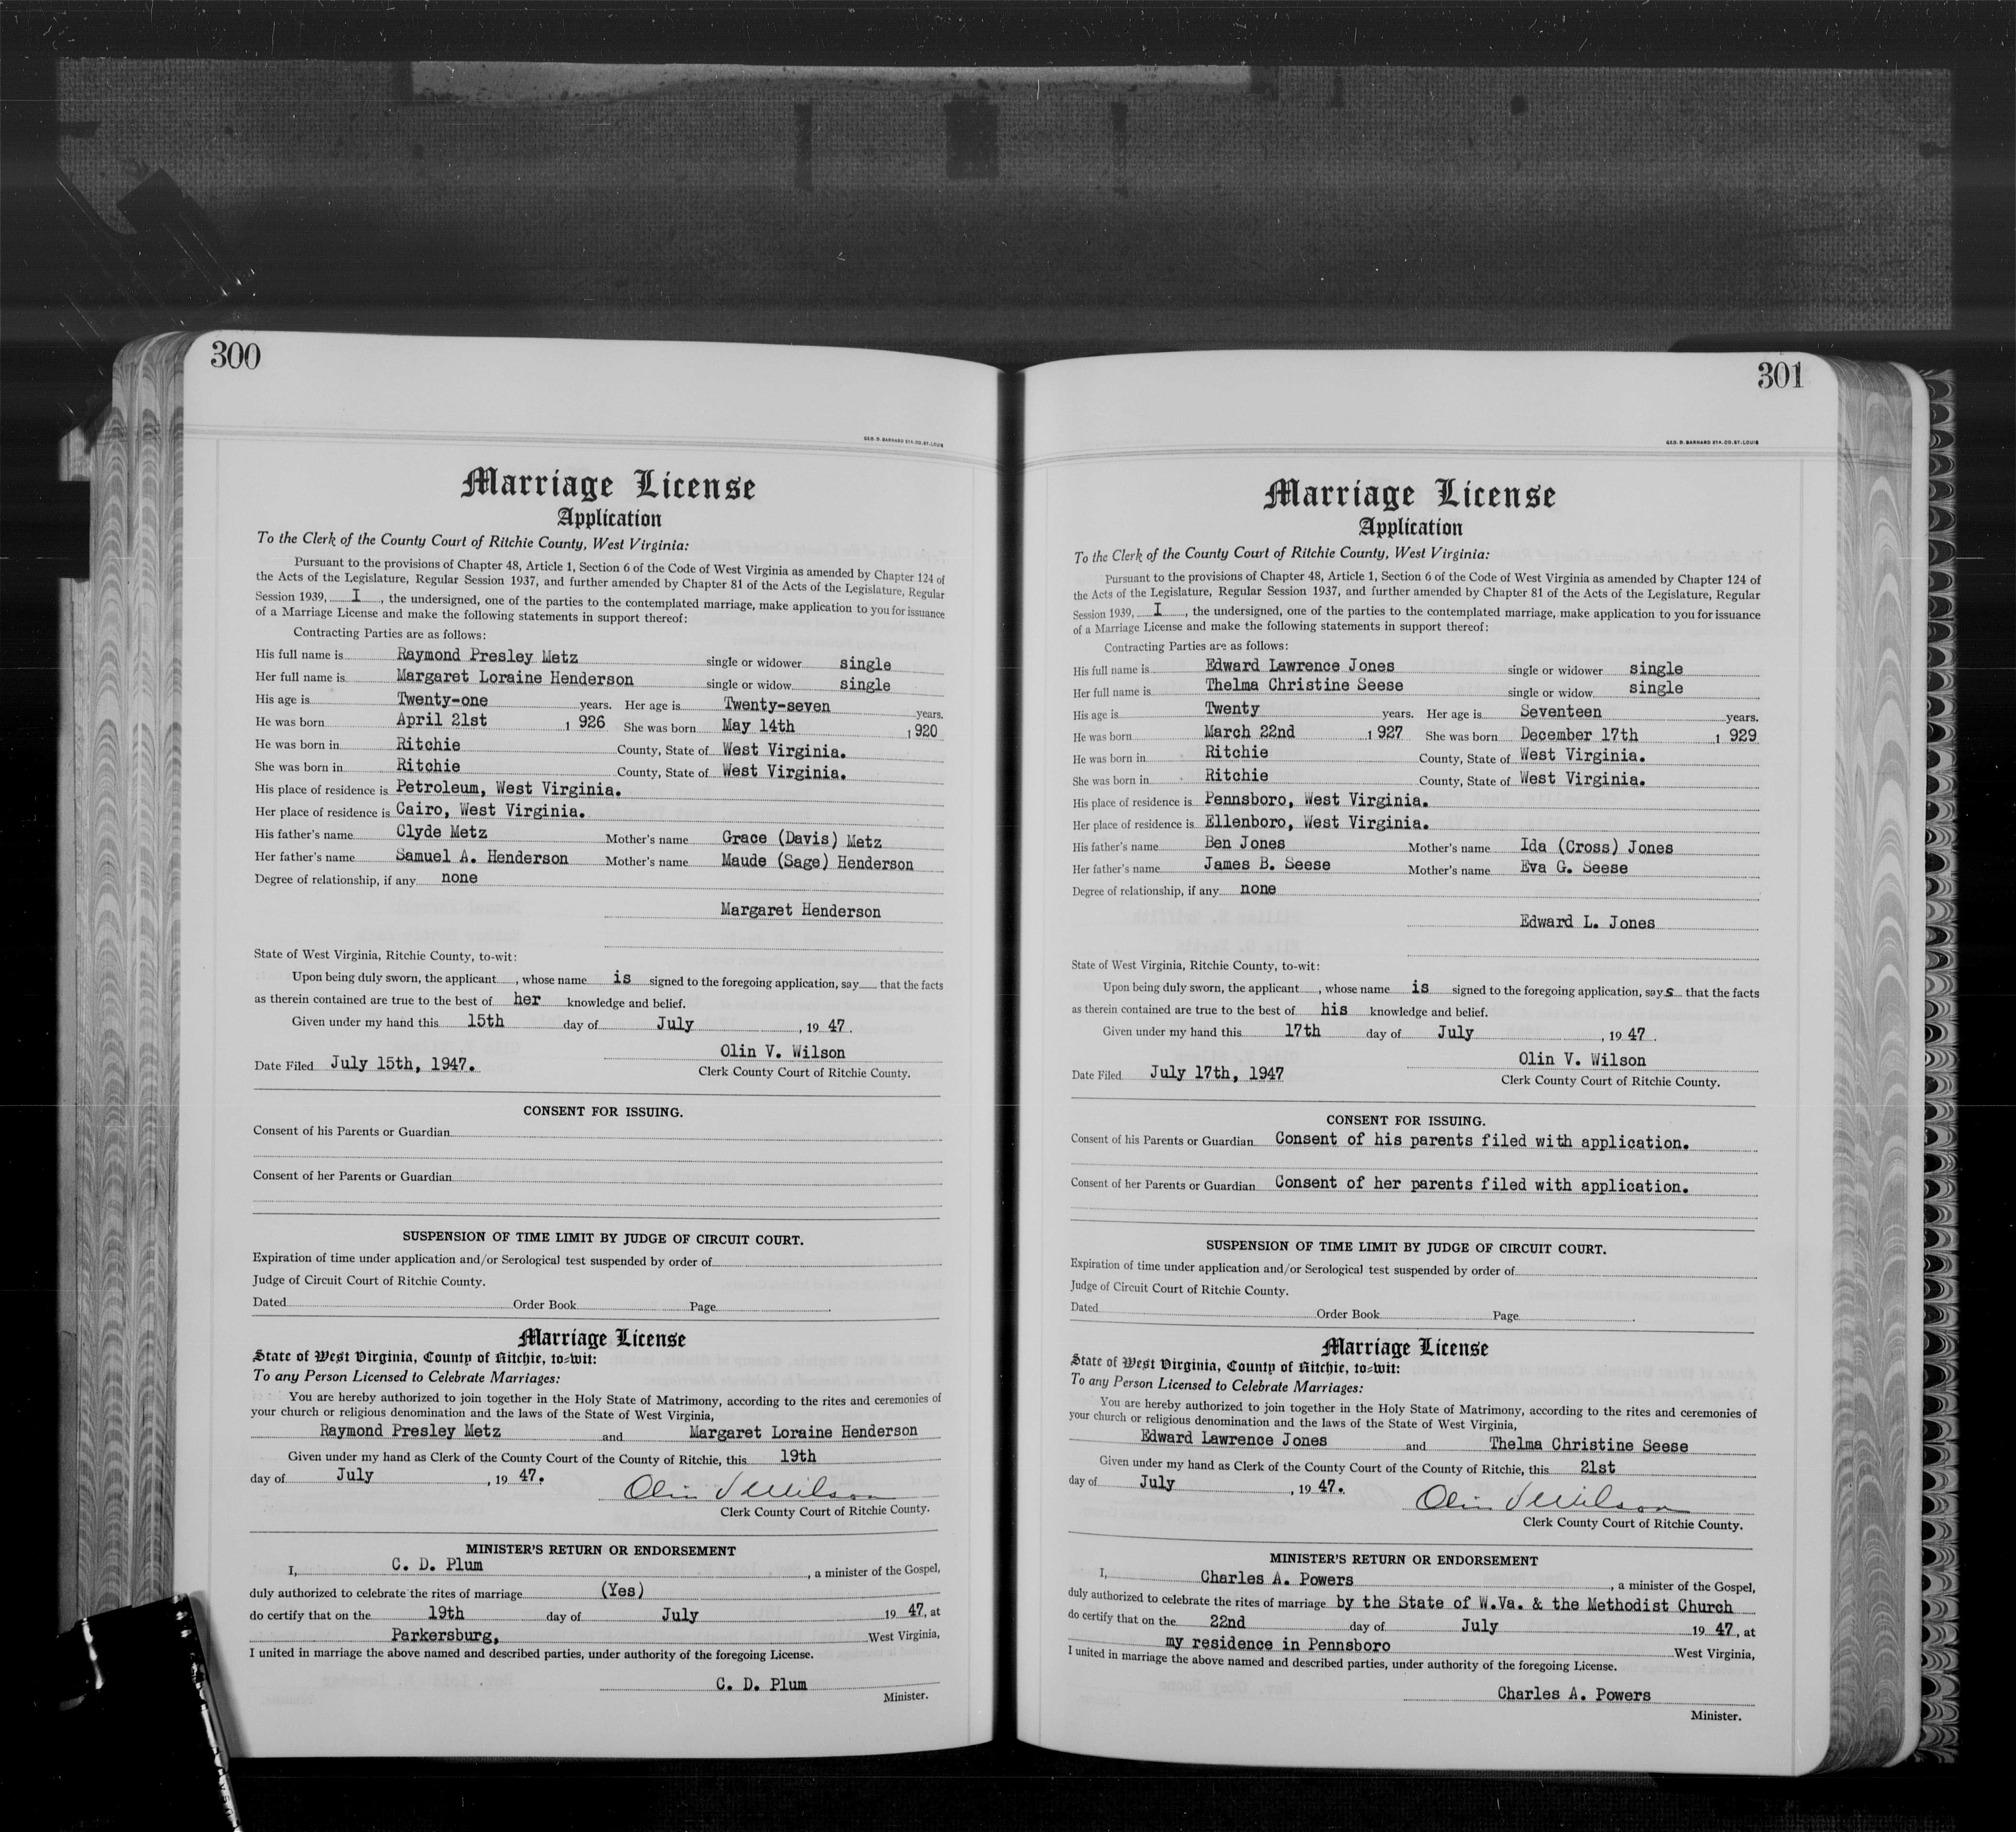 300
GEO. D. BARNARD STA. CO. ST. LOUIS
Marriage License
Application
To the Clerk of the County Court of Ritchie County, West Virginia:
Pursuant to the provisions of Chapter 48, Article 1, Section 6 of the Code of West Virginia as amended by Chapter 124 of
the Acts of the Legislature, Regular Session 1937, and further amended by Chapter 81 of the Acts of the Legislature, Regular
Session 1939, I, the undersigned, one of the parties to the contemplated marriage, make application to you for issuance
of a Marriage License and make the following statements in support thereof:
Contracting Parties are as follows:
His full name is Raymond Presley Metz single or widower single
Her full name is Margaret Loraine Henderson single or widow single
His age is Twenty-one years. Her age is Twenty-seven years.
He was born April 21st 1 926 She was born May 14th 1 920
He was born in Ritchie County, State of West Virginia.
She was born in Ritchie County, State of West Virginia.
His place of residence is Petroleum, West Virginia.
Her place of residence is Cairo, West Virginia.
His father's name Clyde Metz Mother's name Grace (Davis) Metz
Her father's name Samuel A. Henderson Mother's name Maude (Sage) Henderson
Degree of relationship, if any none
Margaret Henderson
State of West Virginia, Ritchie County, to-wit:
Upon being duly sworn, the applicant , whose name is signed to the foregoing application, say that the facts
as therein contained are true to the best of her knowledge and belief.
Given under my hand this 15th day of July , 19 47.
Olin V. Wilson
Date Filed July 15th, 1947.
Clerk County Court of Ritchie County.
CONSENT FOR ISSUING.
Consent of his Parents or Guardian
Consent of her Parents or Guardian
SUSPENSION OF TIME LIMIT BY JUDGE OF CIRCUIT COURT.
Expiration of time under application and/or Serological test suspended by order of
Judge of Circuit Court of Ritchie County.
Dated Order Book Page .
Marriage License
State of West Virginia, County of Ritchie, to-wit:
To any Person Licensed to Celebrate Marriages:
You are hereby authorized to join together in the Holy State of Matrimony, according to the rites and ceremonies of
your church or religious denomination and the laws of the State of West Virginia,
Raymond Presley Metz and Margaret Loraine Henderson
Given under my hand as Clerk of the County Court of the County of Ritchie, this 19th
day of July , 19 47.
Olin V Wilson
Clerk County Court of Ritchie County.
MINISTER'S RETURN OR ENDORSEMENT
I, C. D. Plum , a minister of the Gospel,
duly authorized to celebrate the rites of marriage (Yes)
do certify that on the 19th day of July 19 47, at
Parkersburg, West Virginia,
I united in marriage the above named and described parties, under authority of the foregoing License.
C. D. Plum
Minister.
301
GEO. D. BARNARD STA. CO. ST. LOUIS
Marriage License
Application
To the Clerk of the County Court of Ritchie County, West Virginia:
Pursuant to the provisions of Chapter 48, Article 1, Section 6 of the Code of West Virginia as amended by Chapter 124 of
the Acts of the Legislature, Regular Session 1937, and further amended by Chapter 81 of the Acts of the Legislature, Regular
Session 1939, I, the undersigned, one of the parties to the contemplated marriage, make application to you for issuance
of a Marriage License and make the following statements in support thereof:
Contracting Parties are as follows:
His full name is Edward Lawrence Jones single or widower single
Her full name is Thelma Christine Seese single or widow single
His age is Twenty years. Her age is Seventeen years.
He was born March 22nd 1 927 She was born December 17th 1 929
He was born in Ritchie County, State of West Virginia.
She was born in Ritchie County, State of West Virginia.
His place of residence is Pennsboro, West Virginia.
Her place of residence is Ellenboro, West Virginia.
His father's name Ben Jones Mother's name Ida (Cross) Jones
Her father's name James B. Seese Mother's name Eva G. Seese
Degree of relationship, if any none
Edward L. Jones
State of West Virginia, Ritchie County, to-wit:
Upon being duly sworn, the applicant , whose name is signed to the foregoing application, says that the facts
as therein contained are true to the best of his knowledge and belief.
Given under my hand this 17th day of July , 19 47.
Olin V. Wilson
Date Filed July 17th, 1947
Clerk County Court of Ritchie County.
CONSENT FOR ISSUING.
Consent of his Parents or Guardian Consent of his parents filed with application.
Consent of her Parents or Guardian Consent of her parents filed with application.
SUSPENSION OF TIME LIMIT BY JUDGE OF CIRCUIT COURT.
Expiration of time under application and/or Serological test suspended by order of
Judge of Circuit Court of Ritchie County.
Dated Order Book Page .
Marriage License
State of West Virginia, County of Ritchie, to-wit:
To any Person Licensed to Celebrate Marriages:
You are hereby authorized to join together in the Holy State of Matrimony, according to the rites and ceremonies of
your church or religious denomination and the laws of the State of West Virginia,
Edward Lawrence Jones and Thelma Christine Seese
Given under my hand as Clerk of the County Court of the County of Ritchie, this 21st
day of July , 19 47.
Olin V Wilson
Clerk County Court of Ritchie County.
MINISTER'S RETURN OR ENDORSEMENT
I, Charles A. Powers , a minister of the Gospel,
duly authorized to celebrate the rites of marriage by the State of W.Va. & the Methodist Church
do certify that on the 22nd day of July 19 47, at
my residence in Pennsboro West Virginia,
I united in marriage the above named and described parties, under authority of the foregoing License.
Charles A. Powers
Minister.